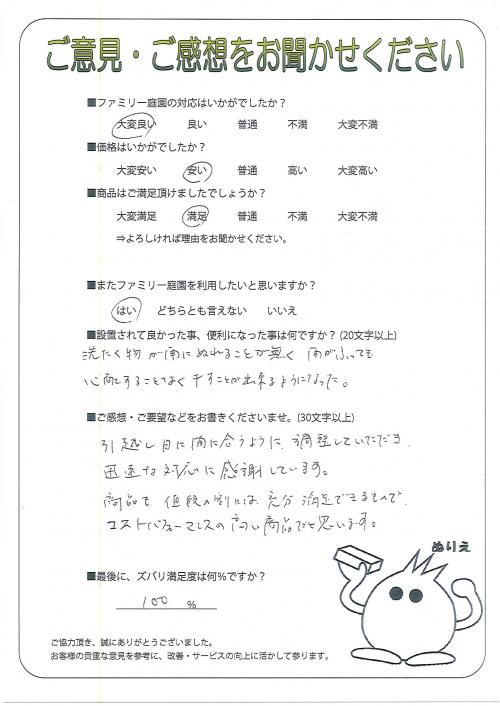 ご意見・ご感想をお聞かせください
■ファミリー庭園の対応はいかがでしたか？
大変良い 良い 普通 不満 大変不満
■価格はいかがでしたか？
大変安い 安い 普通 高い 大変高い
■商品はご満足頂けましたでしょうか？
大変満足 満足 普通 不満 大変不満
⇒よろしければ理由をお聞かせください。
■またファミリー庭園を利用したいと思いますか？
はい どちらとも言えない いいえ
■設置されて良かった事、便利になった事は何ですか？(20文字以上)
洗たく物が雨にぬれることが無く 雨がふっても
心配することなく干すことが出来るようになった。
■ご感想・ご要望などをお書きくださいませ。(30文字以上)
引越し日に間に合うように、調整していただき、
迅速な対応に感謝しています。
商品も値段の割には充分満足できるもので、
コストパフォーマンスの高い商品だと思います。
ぬりえ
■最後に、ズバリ満足度は何％ですか？
100 %
ご協力頂き、誠にありがとうございました。
お客様の貴重な意見を参考に、改善・サービスの向上に活かして参ります。